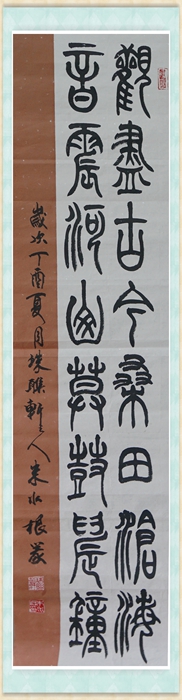 觀盡古今桑田滄海
音震河山莫鼓晨鐘
歲次丁酉夏月珠聯軒主人朱水根篆